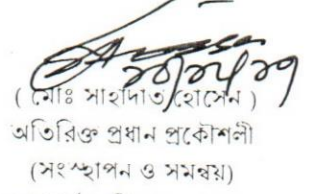 ( মোঃ সাহাদাত হোসেন )
অতিরিক্ত প্রধান প্রকৌশলী
(সংস্থাপন ও সমন্বয়)